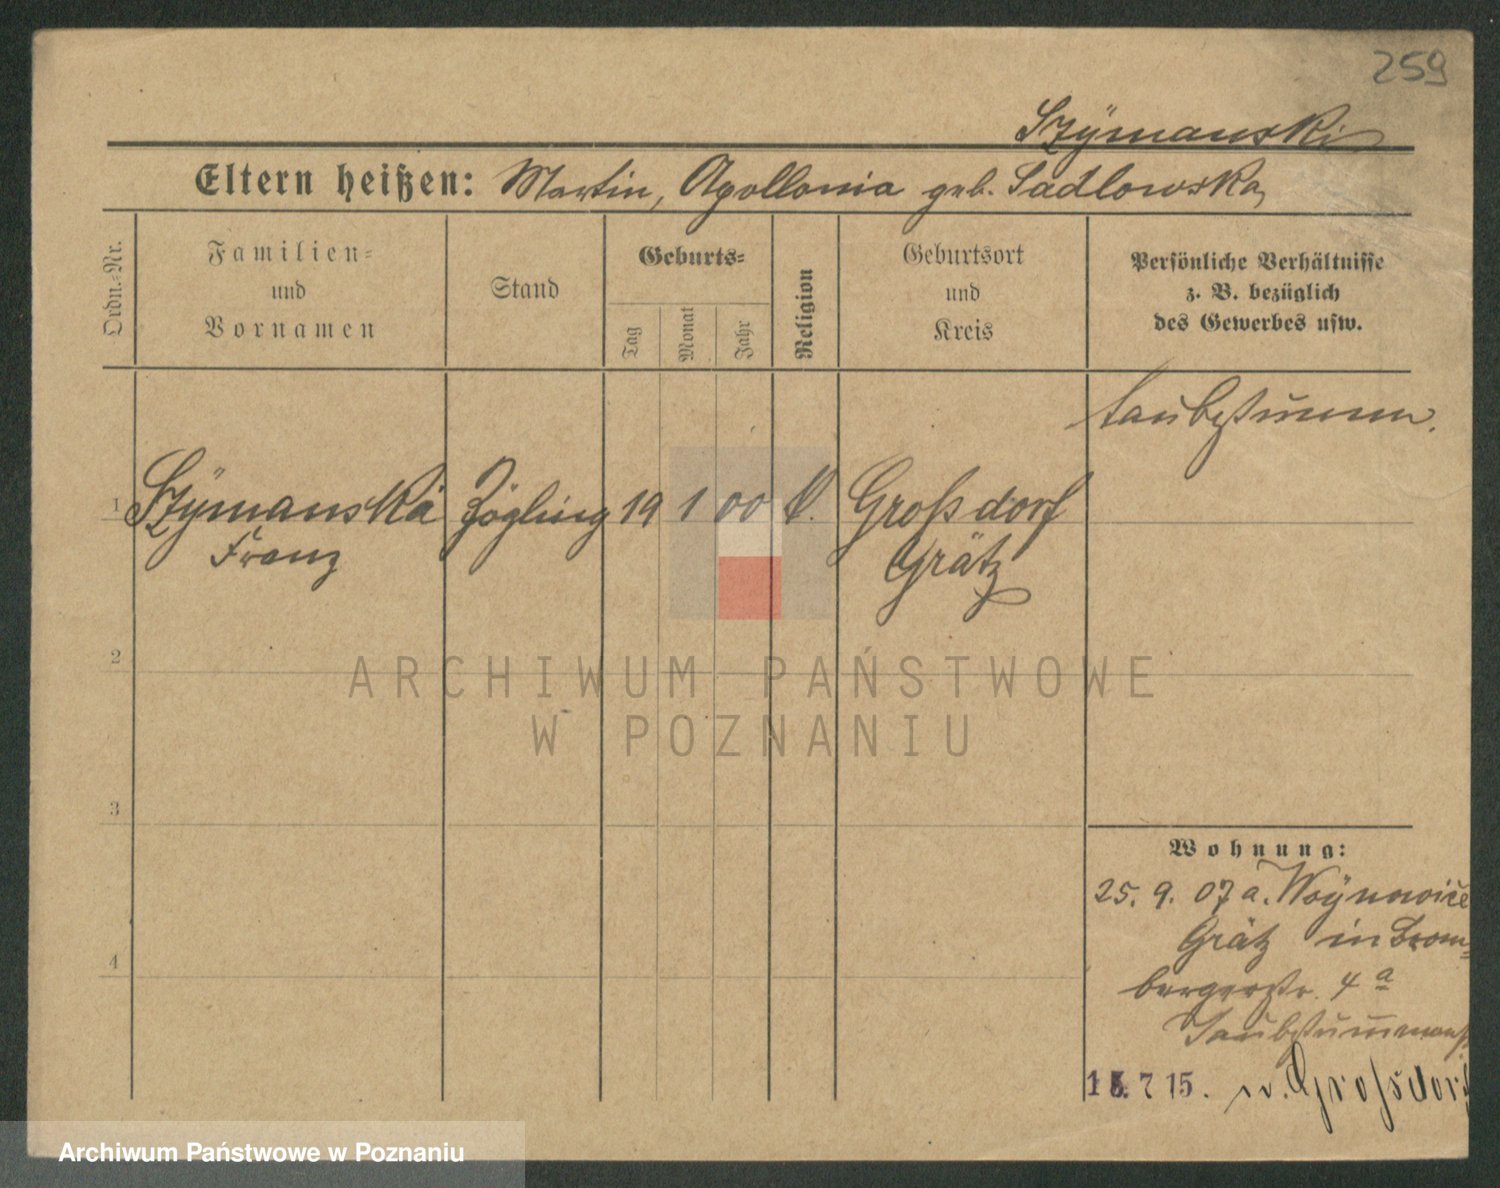 259
Szymanski
Eltern heißen: Martin, Apollonia geb. Sadlowska,
Ordn.-Nr.
Familien-
und
Vornamen
Stand
Geburts-
Tag
Monat
Jahr
Religion
Geburtsort
und
Kreis
Persönliche Verhältnisse
z. B. bezüglich
des Gewerbes usw.
taubstumm.
1 Szÿmanska Zögling 19 1 00 Großdorf
Franz Grätz
2
ARCHIWUM PAŃSTWOWE
W POZNANIU
3
Wohnung:
25. 9. 07 a. Woÿnowice
Grätz in Brom-
bergerstr. 4a
Taubstummenst.
4
7 15. n. Grossdorf
Archiwum Państwowe w Poznaniu